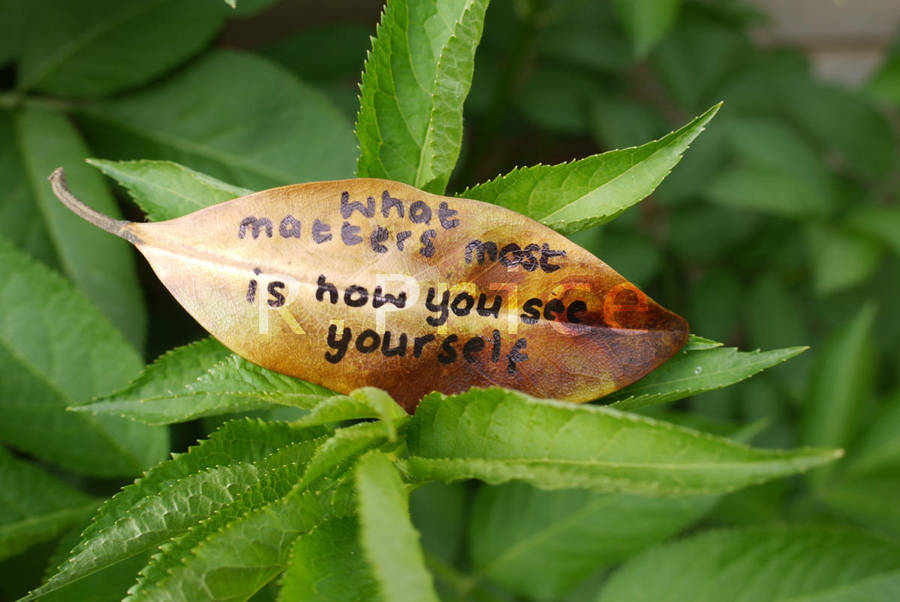 what
matters most
is how you see
yourself
R. Price